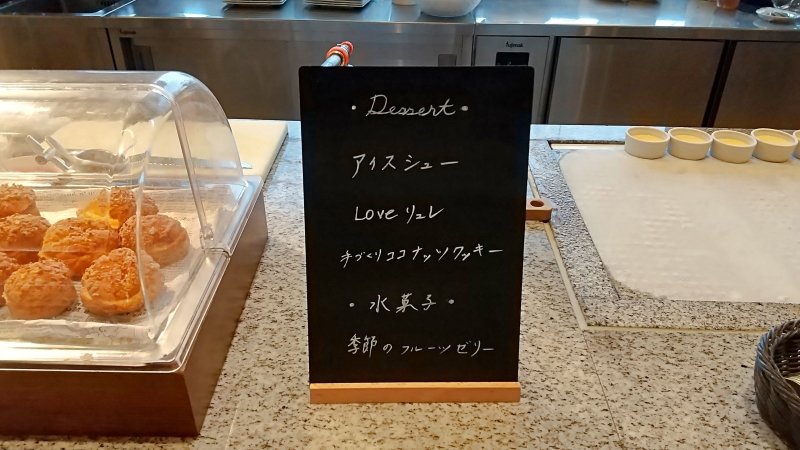 ・Dessert・
アイスシュー
Loveリュレ
手づくりココナッツクッキー
・水菓子・
季節のフルーツゼリー
Fujimak